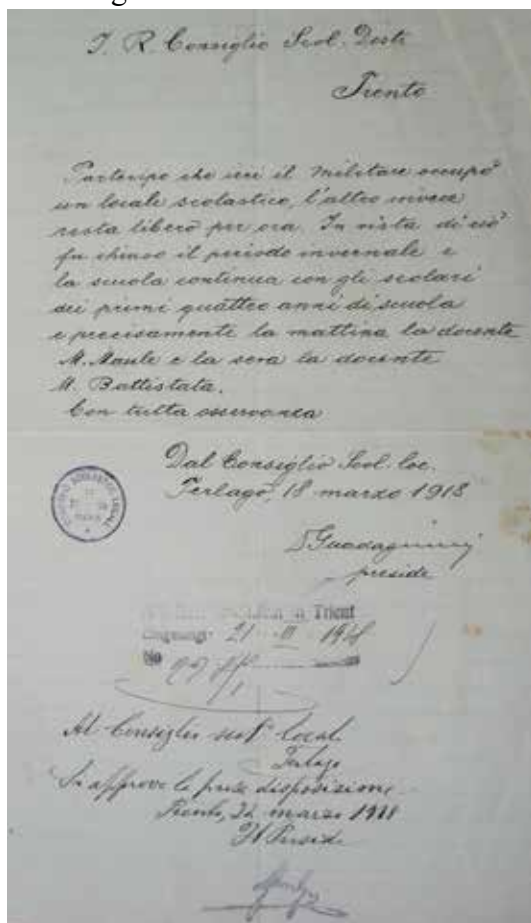 I. R. Consiglio Scol. Distr.
Trento
Partecipo che ieri il militare occupò
un locale scolastico, l'altro invece
resta libero per ora. In vista di ciò
fu chiuso il periodo invernale e
la scuola continua con gli scolari
dei primi quattro anni di scuola
e precisamente la mattina la docente
M. Maule e la sera la docente
M. Battistata.
Con tutta osservanza
Dal Consiglio Scol. loc.
Terlago, 18 marzo 1918
Guadagnini
preside
in Trient
21 III 1918
No
Al Consiglio scol. local
Terlago
Si approva la presa disposizione.
Trento, 22 marzo 1918
Il Presid.